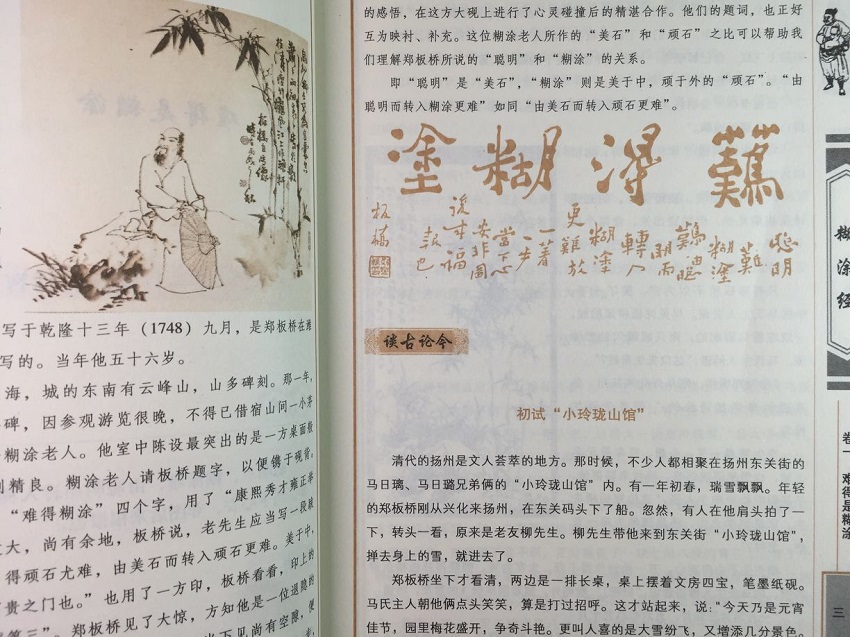 写于乾隆十三年（1748）九月，是郑板桥在潍
写的。当年他五十六岁。
海，城的东南有云峰山，山多碑刻。那一年，
碑，因参观游览很晚，不得已借宿山间一小茅
糊涂老人。他室中陈设最突出的是一方桌面般
刻精良。糊涂老人请板桥题字，以便镌于砚背。
“难得糊涂”四个字，用了“康熙秀才雍正举
大，尚有余地，板桥说，老先生应当写一段跋
得顽石尤难，由美石而转入顽石更难。美于中，
贵之门也。”也用了一方印，板桥看看，印上的
第三”。郑板桥见了大惊，方知他是一位退隐的
当下见尚有空隙，便
的感悟，在这方大砚上进行了心灵碰撞后的精湛合作。他们的题词，也正好
互为映衬、补充。这位糊涂老人所作的“美石”和“顽石”之比可以帮助我
们理解郑板桥所说的“聪明”和“糊涂”的关系。
即“聪明”是“美石”，“糊涂”则是美于中，顽于外的“顽石”。“由
聪明而转入糊涂更难”如同“由美石而转入顽石更难”。
難得糊塗
聪明
难
糊塗
難
聰
明而
轉入
糊塗
更難放
一著
一步
當下心
安非圖
後来福
報也
板橋
谈古论今
初试“小玲珑山馆”
清代的扬州是文人荟萃的地方。那时候，不少人都相聚在扬州东关街的
马日璃、马日璐兄弟俩的“小玲珑山馆”内。有一年初春，瑞雪飘飘。年轻
的郑板桥刚从兴化来扬州，在东关码头下了船。忽然，有人在他肩头拍了一
下，转头一看，原来是老友柳先生。柳先生带他来到东关街“小玲珑山馆”，
掸去身上的雪，就进去了。
郑板桥坐下才看清，两边是一排长桌，桌上摆着文房四宝，笔墨纸砚。
马氏主人朝他俩点头笑笑，算是打过招呼。这才站起来，说：“今天乃是元宵
佳节，园里梅花盛开，争奇斗艳。更叫人喜的是大雪纷飞，又增添几分景色。
糊涂经
卷一
难得是糊涂
三